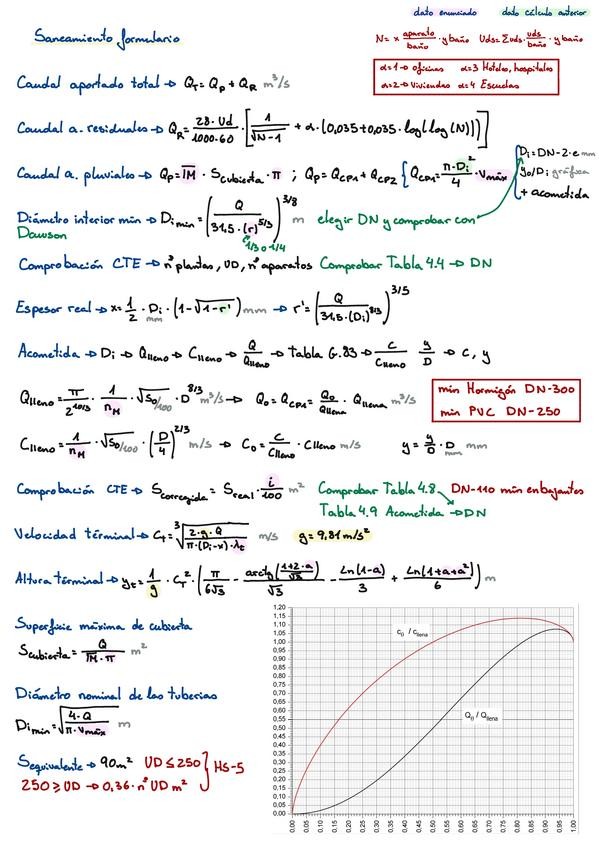 dato enunciado dato cálculo anterior
Saneamiento formulario
N = x aparato/baño · y baño Uds = Σ uds · uds/baño · y baño
α=1 → oficinas α=3 Hoteles, hospitales
α=2 → viviendas α=4 Escuelas
Caudal aportado total → Q_T = Q_P + Q_R m³/s
Caudal a. residuales → Q_R = 28·Ud/1000·60 · [1/√(N-1) + α·(0,035+0,035·log(log(N)))]
Caudal a. pluviales → Q_P = IM · S_cubierta · π ; Q_P = Q_CP1 + Q_CP2 { Q_CP1 = π·Di²/4 · v_máx
{ Di = DN-2·e mm
y₀/Di gráfica
+ acometida
Diámetro interior min → D_i min = (Q/31,5·(r)^5/3)^3/8 m elegir DN y comprobar con
Dawson 1/3 o 1/4
Comprobación CTE → nº plantas, UD, nº aparatos Comprobar Tabla 4.4 → DN
Espesor real → x = 1/2 · Di mm · (1-√(1-r')) mm → r' = (Q/31,5·(Di)^8/3)^3/5
Acometida → Di → Q_lleno → C_lleno → Q/Q_lleno → tabla G.83 → C/C_lleno y/D → c, y
Q_lleno = π/2^10/3 · 1/n_M · √S₀/100 · D^8/3 m³/s → Q₀ = Q_CP1 = Q₀/Q_llena · Q_llena m³/s
min Hormigón DN-300
min PVC DN-250
C_lleno = 1/n_M · √S₀/100 · (D/4)^2/3 m/s → C₀ = C/C_lleno · C_lleno m/s y = y/D · D mm mm
Comprobación CTE → S_corregida = S_real · i/100 m² Comprobar Tabla 4.8 DN-110 min en bajantes
Tabla 4.9 Acometida → DN
Velocidad términal → C_t = ³√(2·g·Q/π·(Di-x)·λ_t) m/s g = 9,81 m/s²
Altura términal → y_t = 1/g · C_T² · (π/6√3 - arctg((1+2·a)/√3)/√3 - Ln(1-a)/3 + Ln(1+a+a²)/6) m
Superficie máxima de cubierta
S_cubierta = Q/IM·π m²
Diámetro nominal de las tuberias
D_i min = √(4·Q/π·v_máx) m
S_equivalente → 90m² UD ≤ 250 } HS-5
250 ≥ UD → 0,36·nº UD m²
1,20
1,15
1,10
1,05
1,00
0,95
0,90
0,85
0,80
0,75
0,70
0,65
0,60
0,55
0,50
0,45
0,40
0,35
0,30
0,25
0,20
0,15
0,10
0,05
0,00
c₀ / c_llena
Q₀ / Q_llena
0,00 0,05 0,10 0,15 0,20 0,25 0,30 0,35 0,40 0,45 0,50 0,55 0,60 0,65 0,70 0,75 0,80 0,85 0,90 0,95 1,00